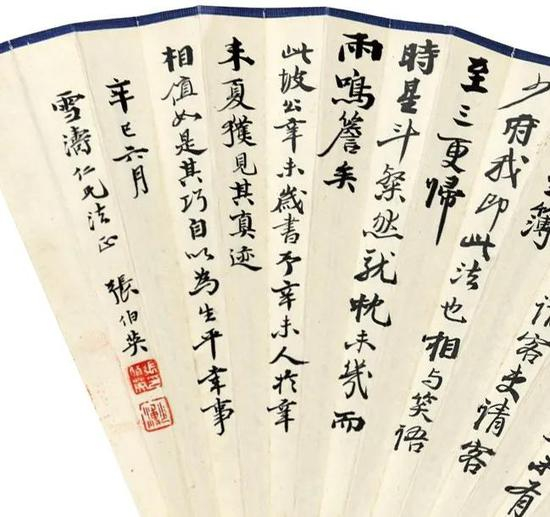 主簿
請客吏請客
少府我即此法也相与笑語
至三更歸
時星斗粲然就枕未幾而
雨鳴簷矣
此坡公辛未歲書予辛未人於辛
未夏獲見其真迹
相值如是其巧自以為生平幸事
辛巳六月
雪濤仁兄法正 張伯英